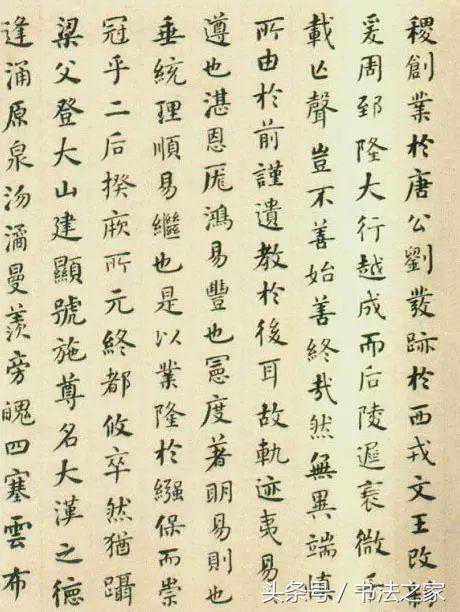 稷創業於唐公劉發跡於西戎文王改
爰周郅隆大行越成而后陵遲衰微
載亡聲豈不善始善終哉然無異端
所由於前謹遺教於後耳故軌迹夷易
遵也湛恩厖鴻易豐也憲度著明易則也
垂統理順易繼也是以業隆於繈保而崇
冠乎二后揆厥所元終都攸卒然猶躡
梁父登大山建顯號施尊名大漢之德
逢涌原泉沕潏曼羨旁魄四塞雲布
头条号/书法之家